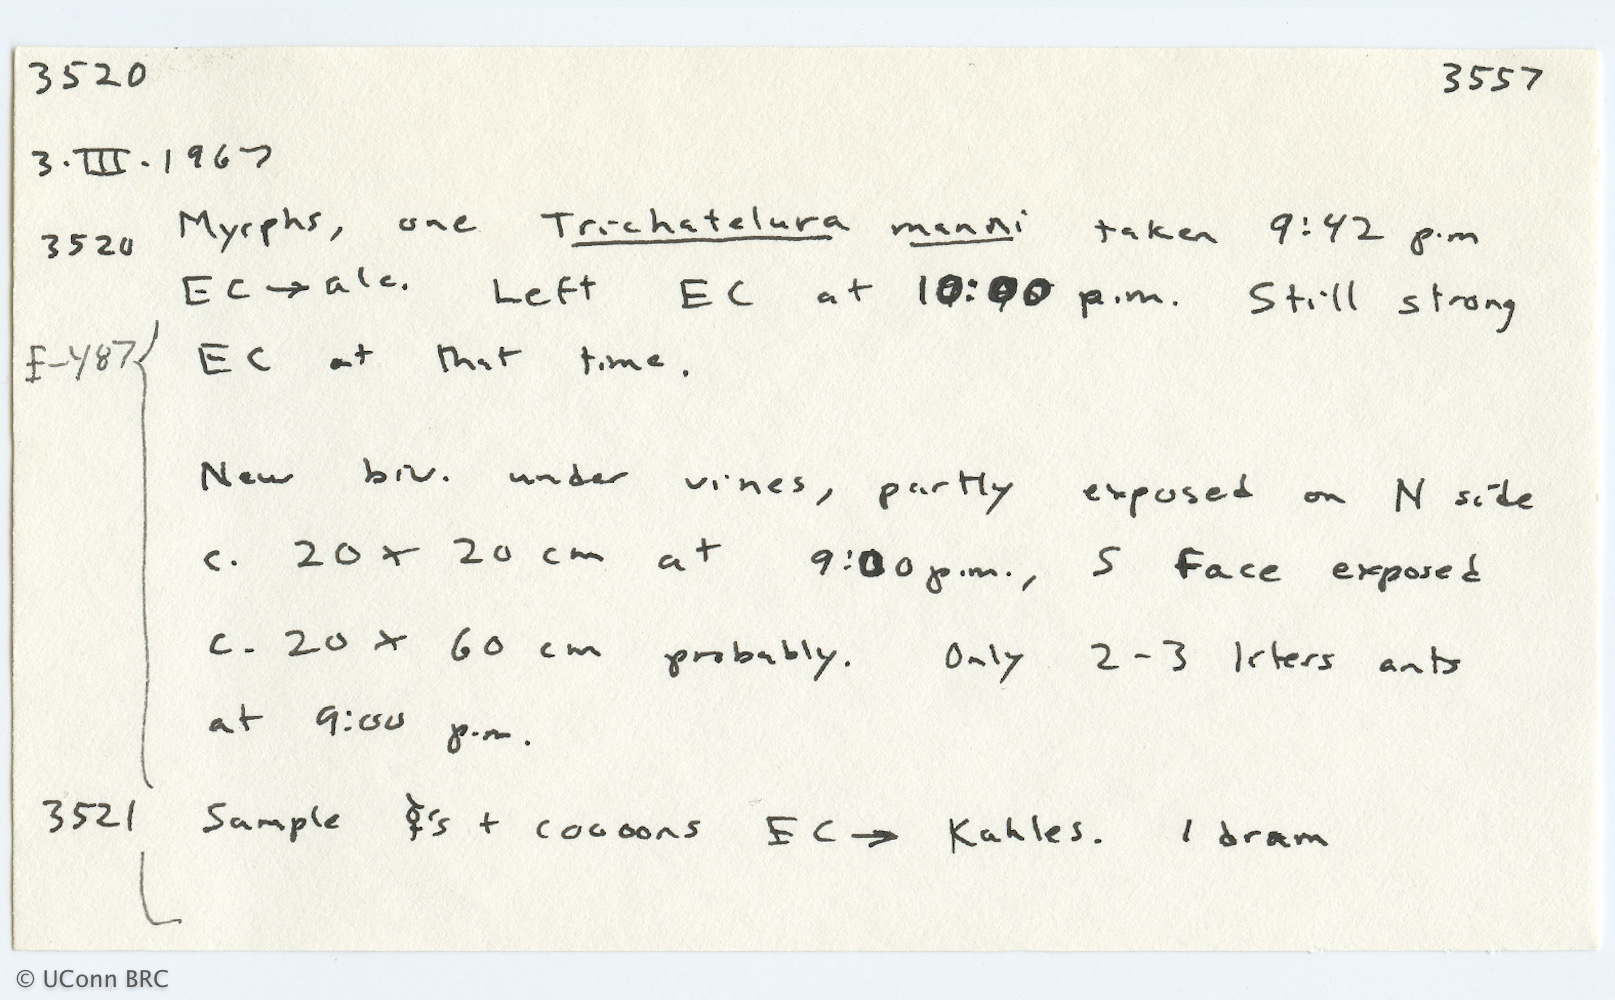 3520 3557
3·III·1967
3520 Myrphs, one Trichatelura manni taken 9:42 p.m
EC→alc. Left EC at 10:00 p.m. Still strong
E-487 EC at that time.
New biv. under vines, partly exposed on N side
c. 20 x 20 cm at 9:00 p.m., S Face exposed
c. 20 x 60 cm probably. Only 2-3 liters ants
at 9:00 p.m.
3521 Sample ☿'s + cocoons EC→ Kahles. 1 dram
© UConn BRC